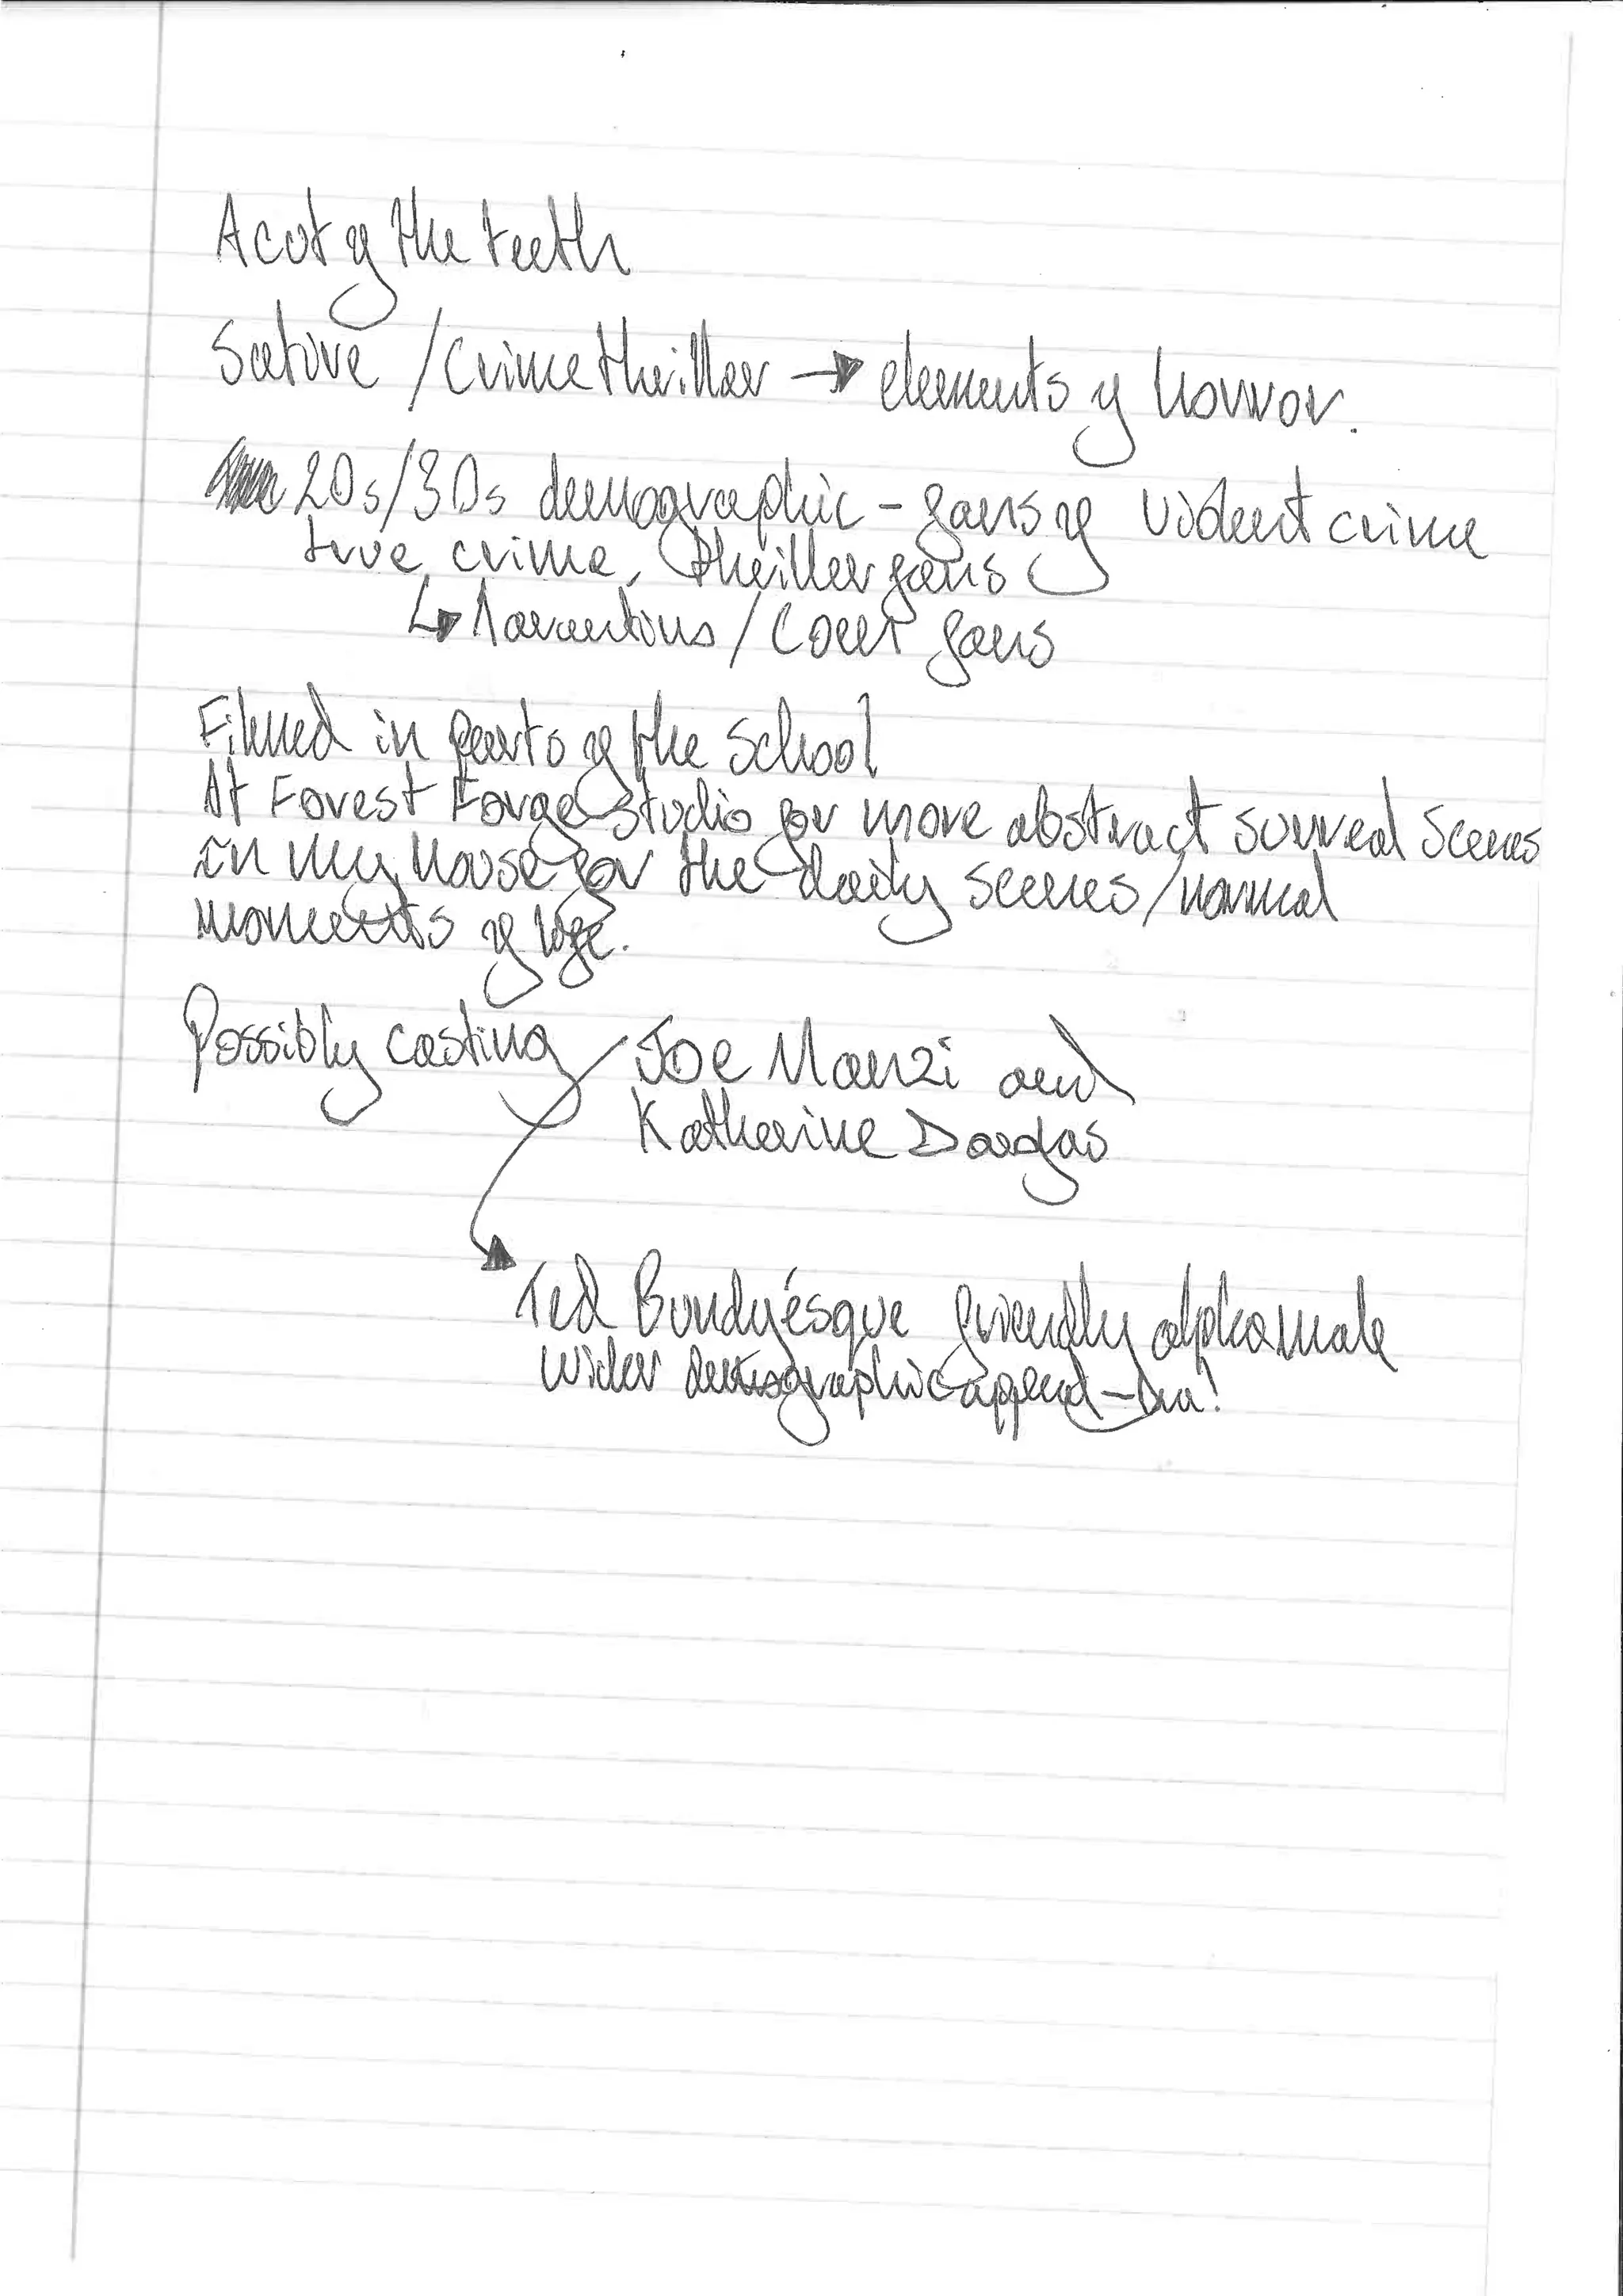 A cut of the teeth
Satire / Crime thriller → elements of horror.
20s/30s demographic - fans of violent crime
true crime, thriller fans
↳ Tarantino / Coen fans
Filmed in parts of the school
At Forest Forge Studio for more abstract surreal scenes
in my house for the daily scenes/normal
moments of life.
Possibly casting Joe Manzi and
Katherine
Ted Bundy ésque friendly alpha male
Wider demographic appeal -